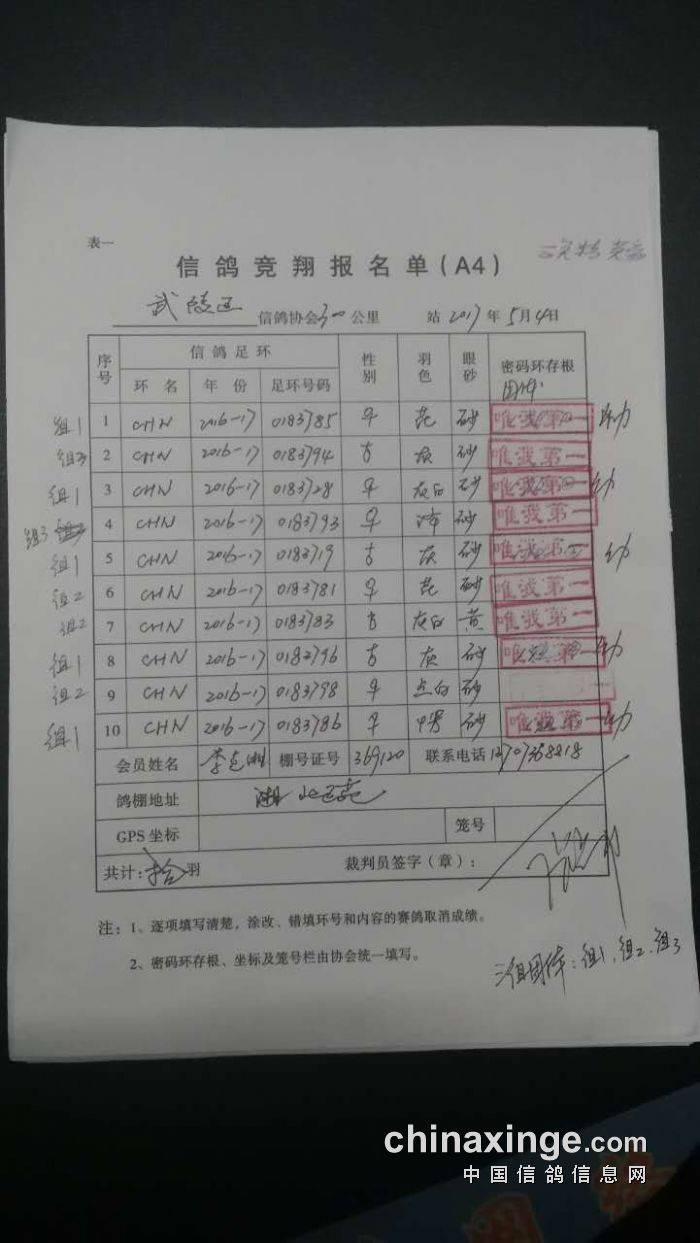 表一
信鸽竞翔报名单(A4)
武陵区 信鸽协会300公里 站 2017年5月4日
序号 信鸽足环 性别 羽色 眼砂 密码环存根
环名 年份 足环号码
组1 1 CHN 2016-17 0183785 早 花 砂 唯我第一 幼
组3 2 CHN 2016-17 0183794 灰 砂 唯我第一
组1 3 CHN 2016-17 0183728 早 灰白 砂 唯我第一 幼
组3 4 CHN 2016-17 0183793 早 砂 唯我第一
组1 5 CHN 2016-17 0183719 灰 砂 唯我第一 幼
组2 6 CHN 2016-17 0183781 早 花 砂 唯我第一
组2 7 CHN 2016-17 0183783 灰白 黄 唯我第一
组1 8 CHN 2016-17 0182796 灰 砂 唯我第一 幼
组2 9 CHN 2016-17 0183798 早 点白 砂
组1 10 CHN 2016-17 0183786 早 砂 唯我第一 幼
会员姓名 李 棚号证号 369120 联系电话
鸽棚地址 湖
GPS坐标 笼号
共计:拾羽 裁判员签字(章):
注:1、逐项填写清楚,涂改、错填环号和内容的赛鸽取消成绩。
2、密码环存根、坐标及笼号栏由协会统一填写。
三组团体:组1、组2、组3
chinaxinge.com
中国信鸽信息网